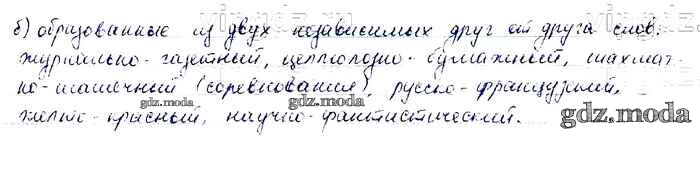 б) образованные из двух независимых друг от друга слов:
журнально-газетный, целлюлозно-бумажный, шахмат-
но-шашечный (соревнования), русско-французкий,
gdz.moda gdz.moda
желто-красный, научно-фантистический.
gdz.moda